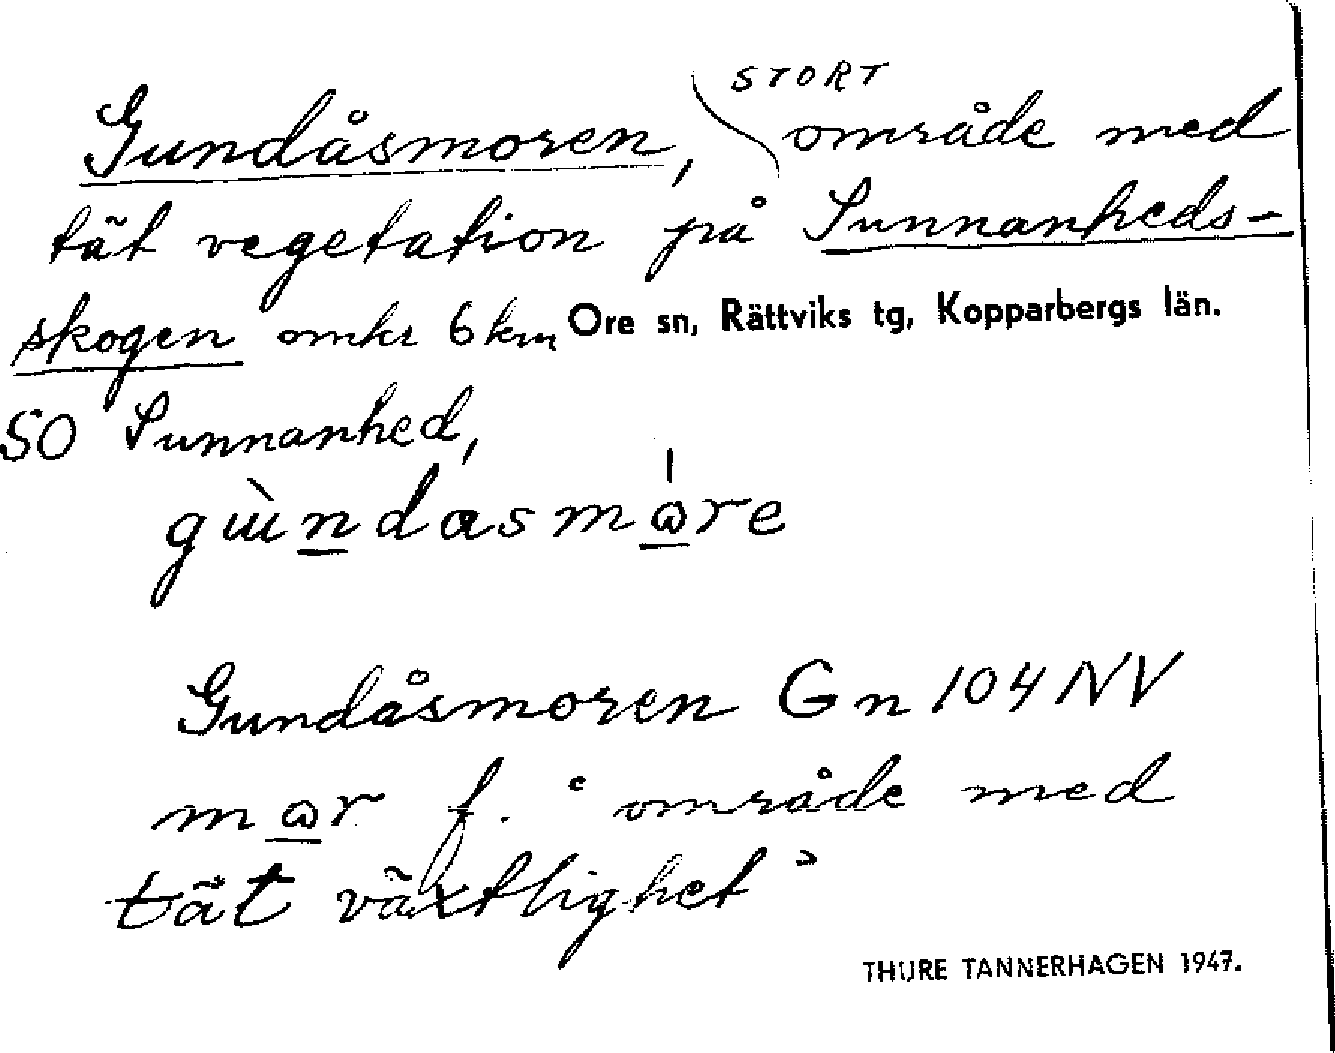 STORT
Gundåsmoren, område med
tät vegetation på Sunnanheds-
skogen omkr 6 km
Ore sn, Rättviks tg, Kopparbergs län.
SO Sunnanhed,
gɯ̀ndasmɷ̍re
Gundåsmoren Gn 104 NV
mɷr f. ʿområde med
tät växtlighetʾ
THURE TANNERHAGEN 1947.